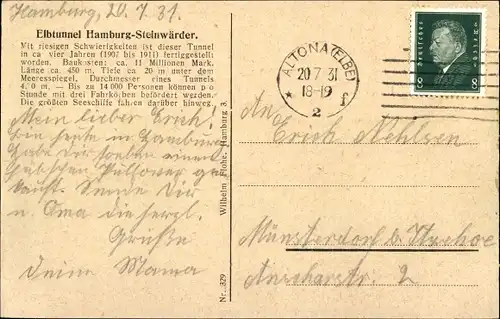 Hamburg, 20.7.31.
Elbtunnel Hamburg-Steinwärder.
Mit riesigen Schwierigkeiten ist dieser Tunnel
in ca vier Jahren (1907 bis 1911) fertiggestellt
worden. Baukosten: ca. 11 Millionen Mark,
Länge ca. 450 m, Tiefe ca 20 m unter dem
Meeresspiegel. Durchmesser eines Tunnels
m. — Bis zu 14 000 Personen können
Stunde mit drei Fahrkörben befördert werden.
Die größten Seeschiffe fahren darüber hinweg.
Mein lieber Erich!
Bin heute in Hamburg
habe Dir soeben einen
hübschen Pullover ge-
kauft. Sende Dir
u. Oma die herzl.
Grüße
Deine Mama
Wilhelm Flohr, Hamburg 3.
Nr. 329
ALTONA (ELBE)
20.7.31
18-19
* 2 f
Deutsches Reich
8
8
An
Erich Nehlsen
Münsterdorf b. Itzehoe
2